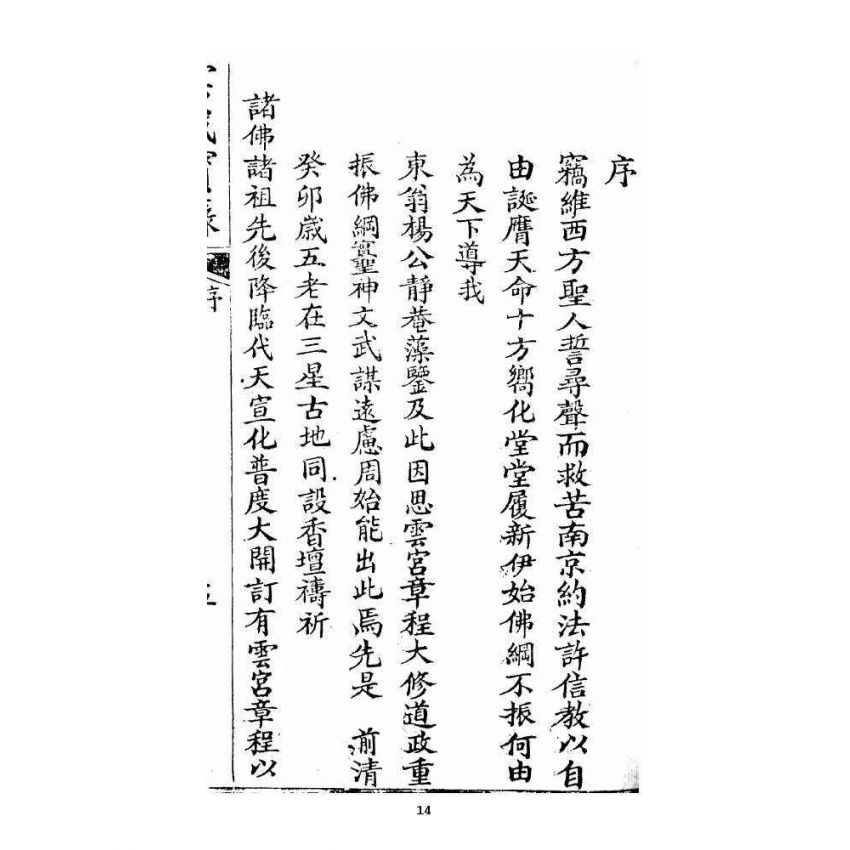 序
竊維西方聖人誓尋聲而救苦南京約法許信教以自
由誕膺天命十方嚮化堂堂履新伊始佛綱不振何由
為天下導我
東翁楊公靜菴藻鑒及此因思雲宮章程大修道政重
振佛綱實聖神文武謀遠慮周始能出此焉先是 前清
癸卯歲五老在三星古地同設香壇禱祈
諸佛諸祖先後降臨代天宣化普度大開訂有雲宮章程以
序
14